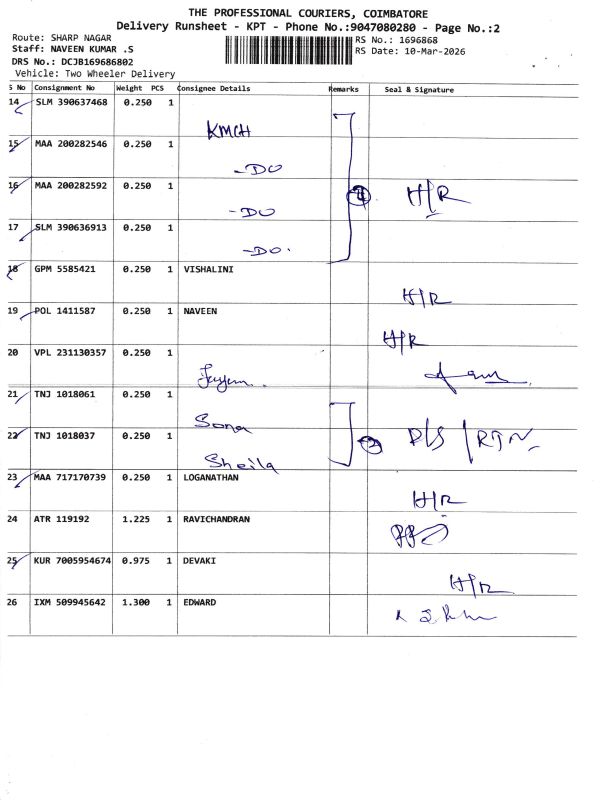 THE PROFESSIONAL COURIERS, COIMBATORE
Delivery Runsheet - KPT - Phone No.:9047080280 - Page No.:2
Route: SHARP NAGAR
RS No.: 1696868
Staff: NAVEEN KUMAR .S
RS Date: 10-Mar-2026
DRS No.: DCJB169686802
Vehicle: Two Wheeler Delivery
S No Consignment No Weight PCS Consignee Details Remarks Seal & Signature
14 SLM 390637468 0.250 1
KMCH
15 MAA 200282546 0.250 1
-DO
16 MAA 200282592 0.250 1
H/R
-DO
17 SLM 390636913 0.250 1
-DO.
18 GPM 5585421 0.250 1 VISHALINI
H/R
19 POL 1411587 0.250 1 NAVEEN
H/R
20 VPL 231130357 0.250 1
21 TNJ 1018061 0.250 1
Sona
22 TNJ 1018037 0.250 1
D/S / RTN
Sheila
23 MAA 717170739 0.250 1 LOGANATHAN
H/R
24 ATR 119192 1.225 1 RAVICHANDRAN
25 KUR 7005954674 0.975 1 DEVAKI
H/R
26 IXM 509945642 1.300 1 EDWARD